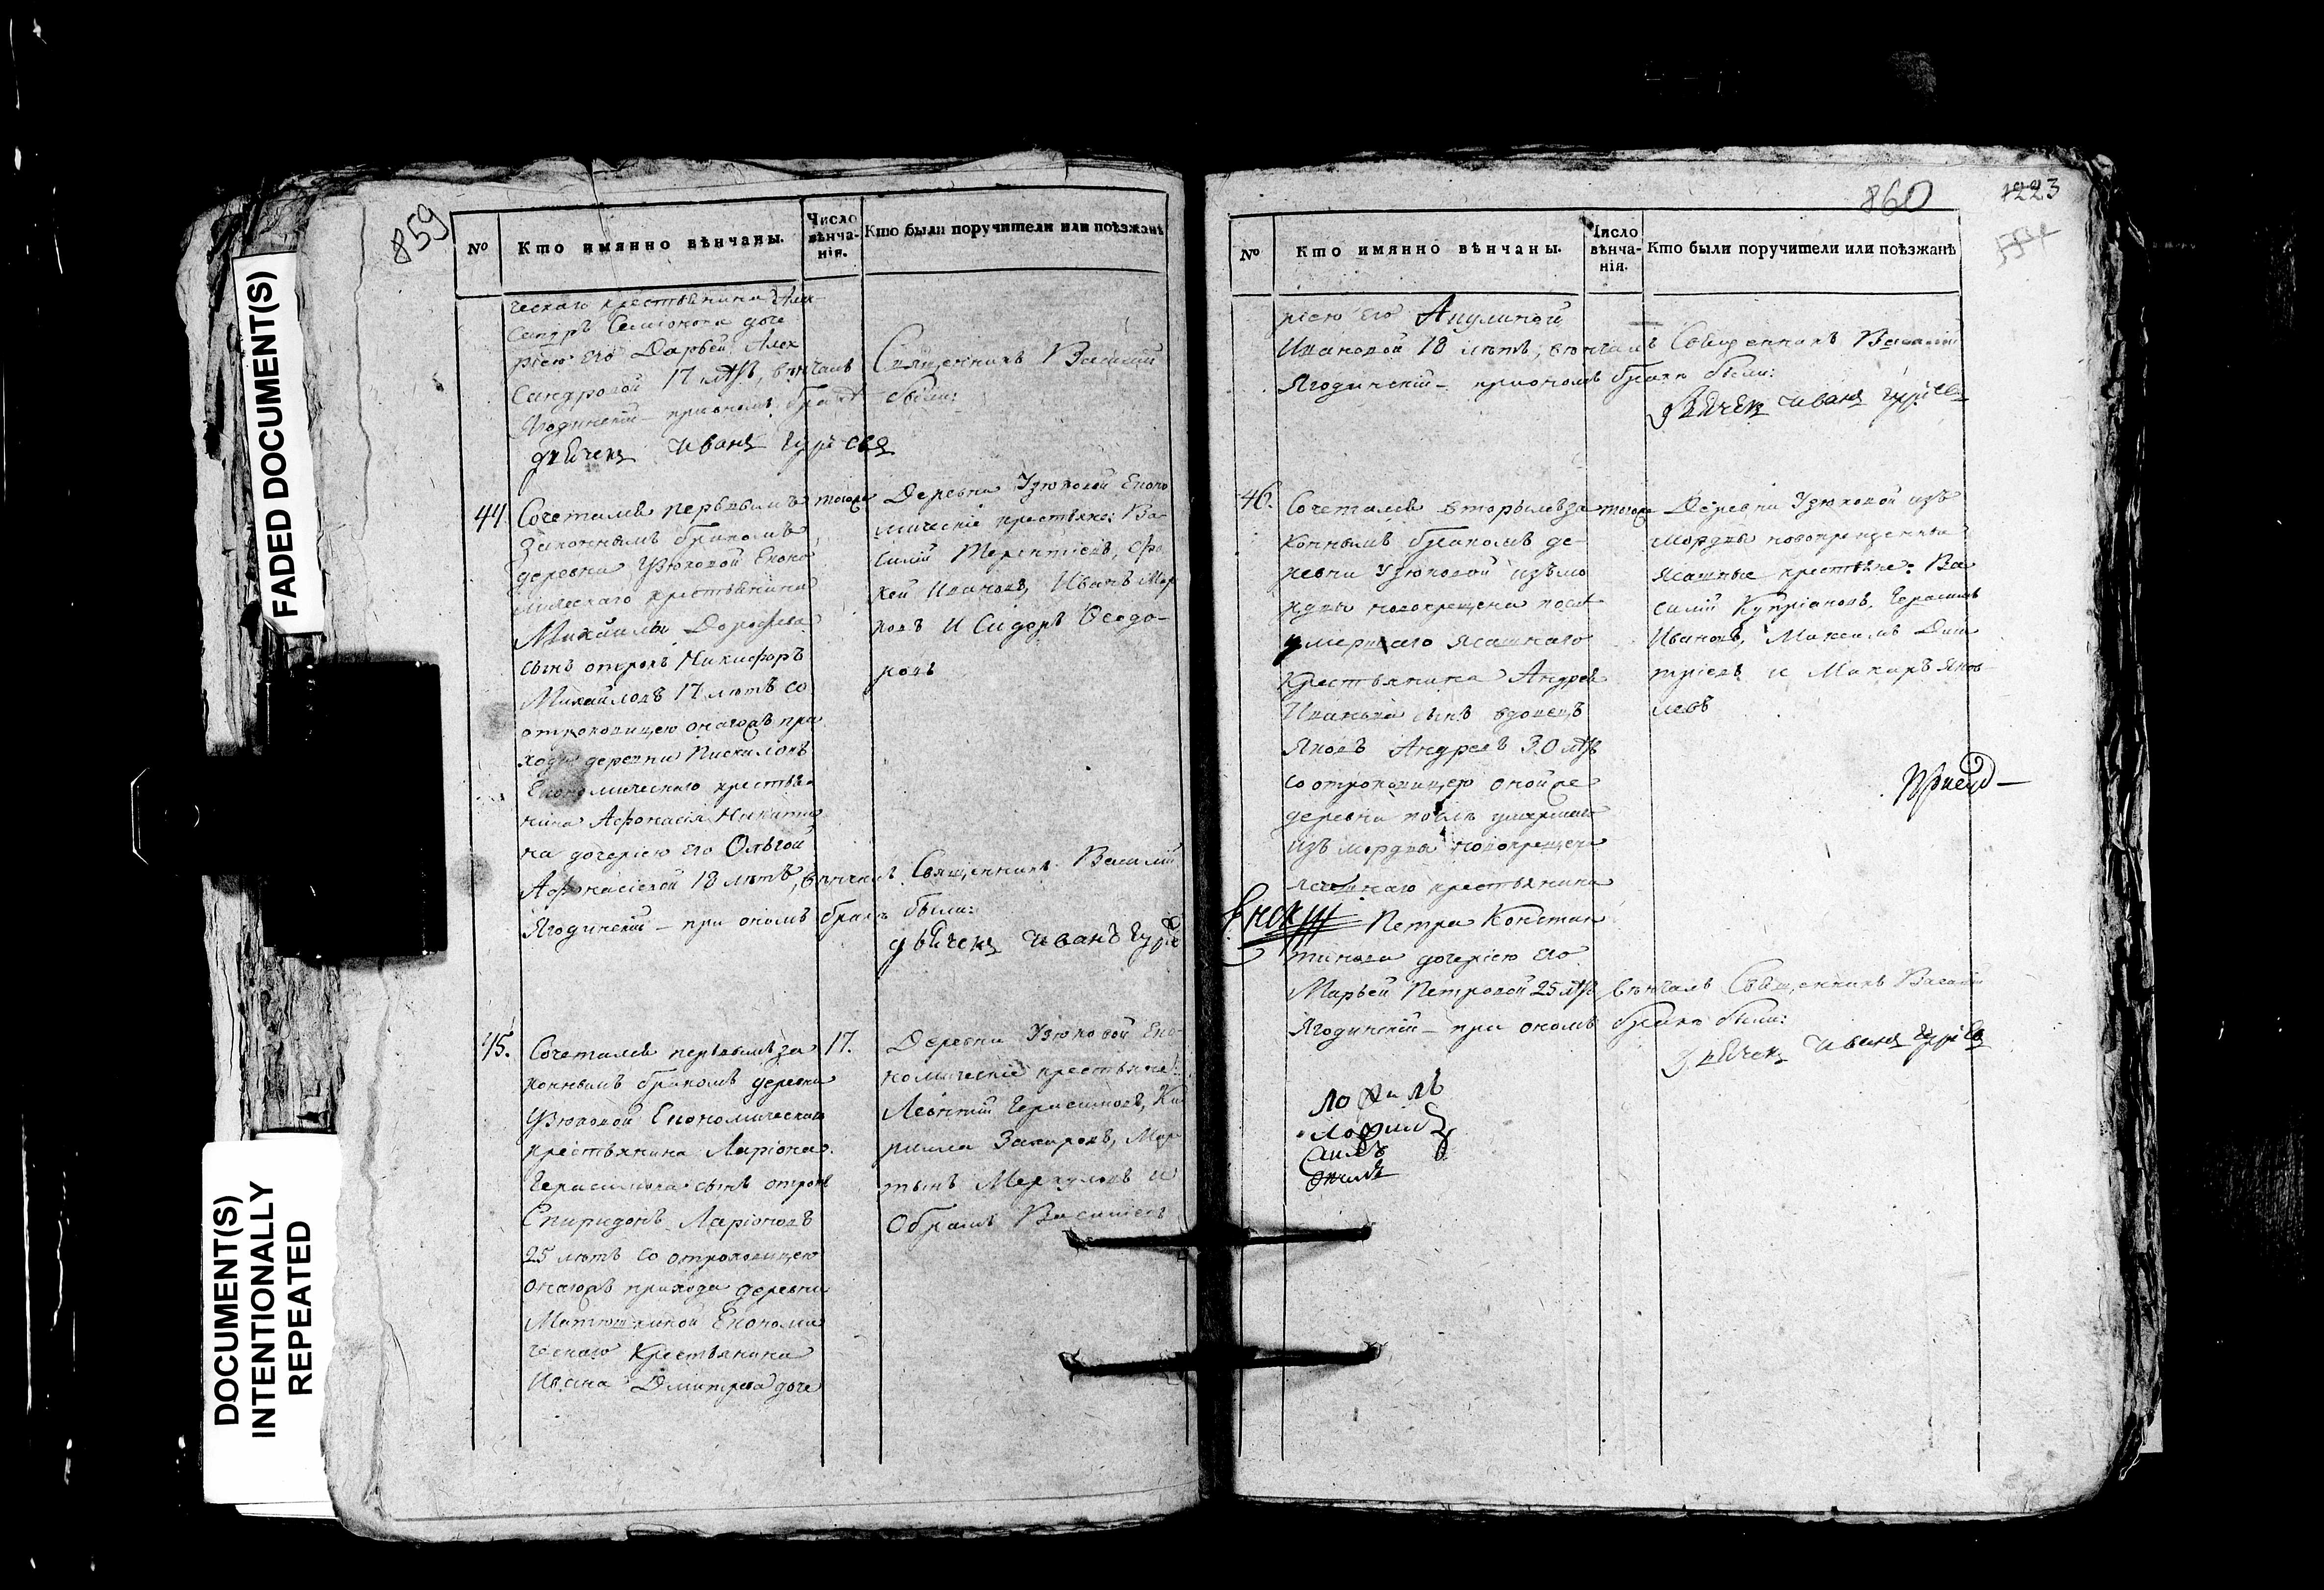 FADED DOCUMENT(S)
DOCUMENT(S)
INTENTIONALLY
REPEATED
859
№ Кто имянно вѣнчаны. Число вѣнча-нія. Кто были поручители или поѣзжанѣ
ческаго крестьянина Алек
сандръ Семіонова доче
рією его Дарьей Алек
сандровой 17 лѣтъ, вѣнчалъ Священникъ Василий
Ягодинский – при ономъ бракѣ были:
дьячекъ Иванъ Гурьевъ
44. Сочетался первымъ тогоже
законнымъ бракомъ
деревни Узюковой Еконо
мическаго крестьянина
Михайлы Дорофева
сынъ отрокъ Никифоръ
Михайловъ 17 лѣтъ со
отроковицею онагожъ при
хода деревни Пискалонъ
Економическаго крестья-
нина Афонасія Никити
на дочерією его Ольгой
Афонасіевой 18 лѣтъ, вѣнчалъ Священникъ Василий
Ягодинский – при ономъ бракѣ были:
дьячекъ Иванъ Гурье
Деревни Узюковой Еконо
мическіе крестьяне: Ва-
силий Терентіевъ, Фо
кей Ивановъ, Иванъ Мар
ковъ и Сидоръ Ѳеодо-
ровъ
45. Сочетался первымъ за 17.
коннымъ бракомъ деревни
Узюковой Економическаго
крестьянина Ларіона
Герасимова сынъ отрокъ
Спиридонъ Ларіоновъ
25 лѣтъ со отроковицею
онагожъ прихода деревни
Матюшкиной Економи
ческаго Крестьянина
Ивана Дмитрева доче
Деревни Узюковой Еко-
номическіе крестьяне:
Леонтий Герасимовъ, Ки
рилла Захаровъ, Мар
тынъ Меркуловъ и
Обрамъ Васильевъ
860
1223
№ Кто имянно вѣнчаны. Число вѣнча-нія. Кто были поручители или поѣзжанѣ
рією его Акулиной
Ивановой 18 лѣтъ, вѣнчалъ Священникъ Василий
Ягодинский – при ономъ бракѣ были:
дьячекъ Иванъ Гурьевъ
46. Сочетался вторымъ за тогоже
коннымъ бракомъ де-
ревни Узюковой изъ мо
рдвы новокрещена послѣ
умершаго Ясашнаго
Крестьянина Андрея
Иванова сынъ вдовецъ
Яковъ Андреевъ 30 лѣтъ
со отроковицею оной же
деревни послѣ умершаго
изъ мордвы новокрещена
ясашнаго крестьянина
Петра Констан
тинова дочерією его
Марьей Петровой 25 лѣтъ вѣнчалъ Священникъ Василий
Ягодинский – при ономъ бракѣ были:
дьячекъ Иванъ Гурьевъ
Деревни Узюковой изъ
Мордвы новокрещенныя
Ясашные крестьяне: Ва
силий Купріановъ, Герасимъ
Ивановъ, Максимъ Дми
тріевъ и Макаръ Яков
левъ